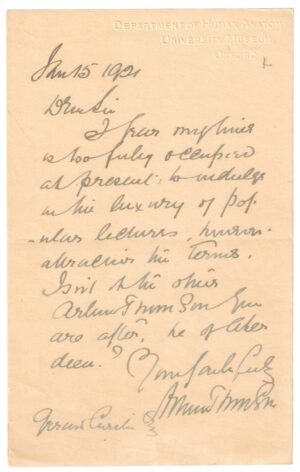 DEPARTMENT OF HUMAN ANATOMY
UNIVERSITY MUSEUM
OXFORD
Jan 15 1921
Dear Sir
I fear my time
is too fully occupied
at present to indulge
in the luxury of pop
-ular lectures, however
attractive the terms.
Isn't it the other
Arthur Thomson you
are after, he of Aber
deen?
Yours faithfully
Arthur Thomson